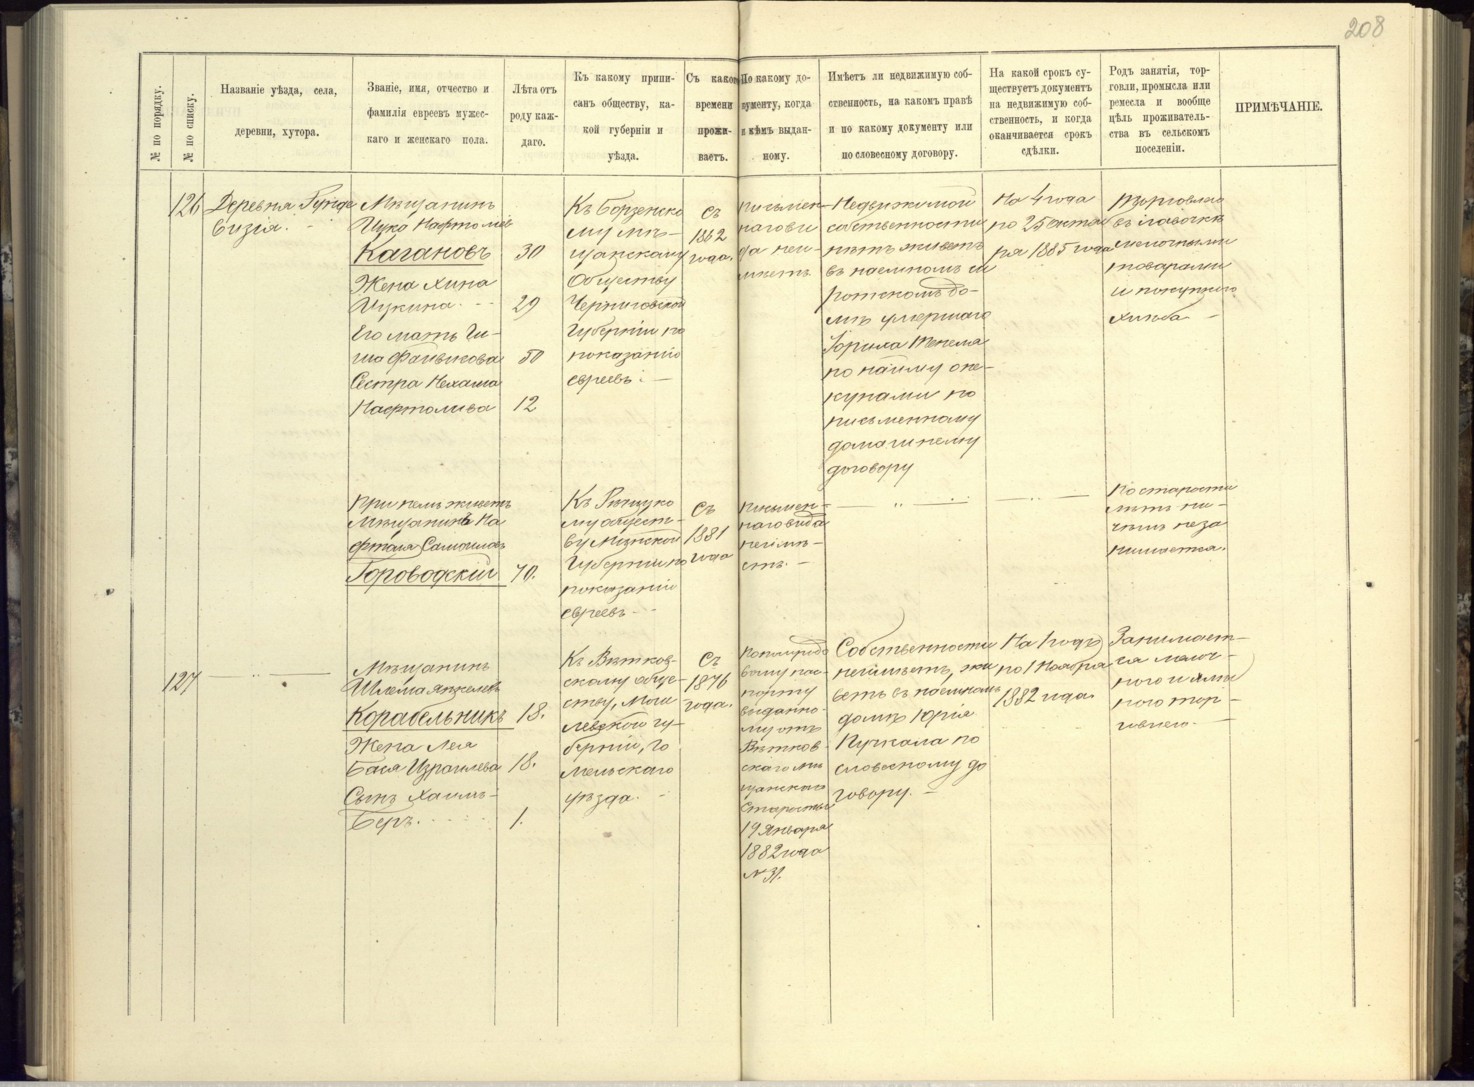 208
№ по порядку.
№ по списку.
Названіе уѣзда, села,
деревни, хутора.
Званіе, имя, отчество и
фамилія евреевъ мужес-
каго и женскаго пола.
Лѣта отъ
роду каж-
даго.
Къ какому припи-
санъ обществу, ка-
кой губерніи и
уѣзда.
Съ какого
времени
прожи-
ваетъ.
По какому до-
кументу, когда
и кѣмъ выдан-
ному.
Имѣетъ ли недвижимую соб-
ственность, на какомъ правѣ
и по какому документу или
по словесному договору.
На какой срокъ су-
ществуетъ документъ
на недвижимую соб-
ственность, и когда
оканчивается срокъ
сдѣлки.
Родъ занятія, тор-
говли, промысла или
ремесла и вообще
цѣль проживатель-
ства въ сельскомъ
поселеніи.
ПРИМѢЧАНІЕ.
126
Деревня
Мѣщанинъ
Кагановъ
30
Жена Хина
29
Его мать
50
Сестра Нехама
Нафтолива
12
Къ Борзенско
му мѣ-
щанскому
обществу
Черниговской
Губерніи по
показанію
евреевъ. —
Съ
1862
года.
Письмен-
наго ви
да неи-
мѣетъ
Недвижимой
собственности
нѣтъ живетъ
въ наемномъ си
ротскомъ до-
мѣ умершаго
по найму опе-
кунами по
письменному
домашнему
договору
На 4 года
по 25
ря 1885 года
Торговлею
въ лавочкѣ
мелочными
товарами
и покупкою
хлѣба —
При немъ живетъ
Мѣщанинъ На
фтоля Самойловъ
Городскій
70.
му общест-
ву Минской
Губерніи по
показанію
евреевъ —
Съ
1881
года
Письмен-
наго вида
неимѣ-
етъ. —
По старости
лѣтъ ни-
чѣмъ неза
нимается.
127
Мѣщанинъ
Шлема
Корабельникъ
18.
Жена Лея
Бася Израилева
18.
Сынъ Хаимъ-
Беръ.
1.
Къ Вѣтков-
скому обще-
ству, Моги
левской гу-
берніи, Го
мельскаго
уѣзда. —
Съ
1876
года.
вому пас-
порту
выданно-
му отъ
Вѣтков-
скаго мѣ
щанскаго
Старосты
19 Января
1882 года
№ 31.
Собственности
неимѣетъ, жи
ветъ въ наемномъ
домѣ Юрія
Кучкала по
словесному до
говору. —
На 1 годъ
по 1 Ноября
1882 года
Занимает-
ся мелоч-
ного
торговлею. —